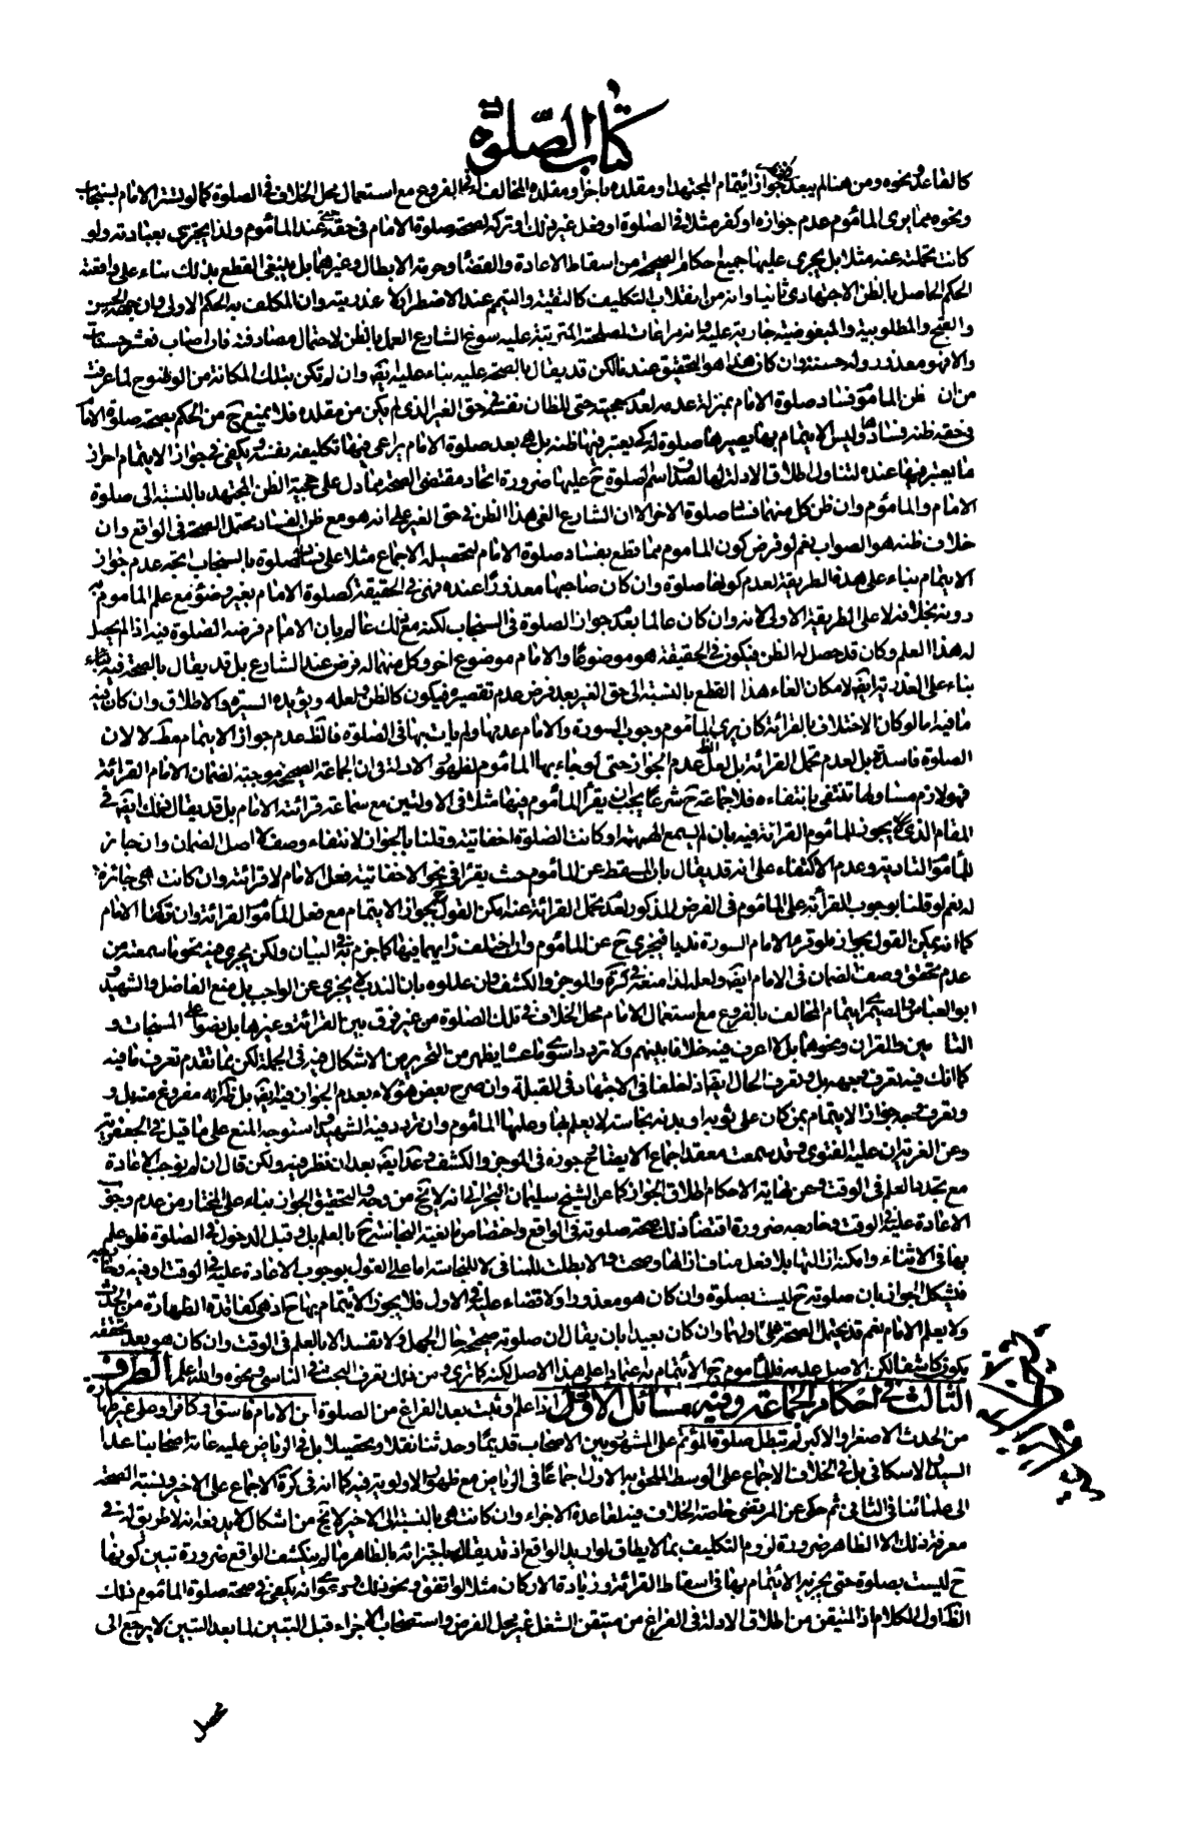 كتاب الصلوة
كالقاعد ونحوه ومن هنا لم يبعد جواز ايتمام المجتهد او مقلده باخر او مقلده المخالف له في الفروع مع استعمال محل الخلاف في الصلوة كما لو تستر الامام بسنجاب
ونحوه مما يرى المأموم عدم جوازه او كفر مثلا في الصلوة او فعل غير ذلك او تركه لصحة صلوة الامام في حقه عند المأموم ولذا يجتزى بعبادته ولو
كانت تحملية عنه مثلا بل يجرى عليها جميع احكام الصحة من اسقاط الاعادة والقضاء وحرمة الابطال وغيرهما بل ينبغي القطع بذلك بناء على واقعية
الحكم الحاصل بالظن الاجتهادي ثانيا وانه من انقلاب التكليف كالتقية والتيمم عند الاضطرار لا عذريته وان المكلف به الحكم الاولى وان جهة الحسن
والقبح والمطلوبية والمبغوضية جارية عليه وانه مراعات لمصلحة المترتبة عليه سوغ الشارع العمل بالظن لاحتمال مصادفته فان اصاب فعشر حسنات
والا فهو معذور وله حسنة وان كان هذا هو التحقيق عندنا لكن قد يقال بالصحة عليه بناء عليه ايضا وان لم تكن بتلك المكانة من الوضوح لما عرفت
من ان ظن المأموم فساد صلوة الامام بمنزلة عدمه لعدم حجيته حتى للظان نفسه في حق الغير الذي لم يكن من مقلده فلا يمنع ح من الحكم بصحة صلوة الامام
في حقه ظنه فسادها وليس الايتمام بها يصيرها صلوة له كي يعتبر فيها ظنه بل هي بعد صلوة الامام يراعى فيها تكليفه نفسه ويكفى في جواز الايتمام احراز
ما يعتبر فيها عنده لتناول اطلاق الادلة لها لصدق اسم الصلوة ح عليها ضرورة اتحاد مقتضى الصحة مما دل على حجية الظن المجتهد بالنسبة الى صلوة
الامام والمأموم وان ظن كل منهما فساد صلوة الاخر الا ان الشارع الغى هذا الظن في حق الغير على انه هو مع ظن الفساد محتمل الصحة في الواقع وان
خلاف ظنه هو الصواب نعم لو فرض كون الماموم مما يقطع بفساد صلوة الامام لتحصيله الاجماع مثلا على فساد الصلوة بالسنجاب اتجه عدم جواز
الايتمام بناء على هذه الطريقة لعدم كونها صلوة وان كان صاحبها معذورا عنده فهي في الحقيقة كصلوة الامام بغير وضوء مع علم الماموم به
دونه بخلافه لا على الطريقة الاولى لانه وان كان عالما بعدم جواز الصلوة في السنجاب لكنه مع ذلك عالم بان الامام فرضه الصلوة فيه اذا لم يحصل
له هذا العلم وكان قد حصل له الظن فيكون في الحقيقة هو موضوعا والامام موضوع اخر وكل منهما له فرض عند الشارع بل قد يقال بالصحة فيه
بناء على العذرية ايضا لامكان الغاء هذا القطع بالنسبة الى حق الغير بعد فرض عدم تقصيره فيكون كالظن ولعله ويؤيده السيرة والاطلاق وان كان فيه
ما فيه اما لو كان الاختلاف بالقرائة كان يرى المأموم وجوب السورة والامام عدمها ولم يات بها في الصلوة فالظ عدم جواز الايتمام مط لا لان
الصلوة فاسدة بل لعدم تحمل القرائة بل لعل الظ عدم الجواز حتى لو جاء بها المأموم لظهور الادلة في ان الجماعة الصحيحة موجبة لضمان الامام القرائة
فهو لازم مساو لها تنتفى بانتفاءه فلا جماعة ح شرعا يجب ان يقرأ المأموم فيها مثلا في الاولتين مع سماعه قرائة الامام بل قد يقال ذلك ايضا في
المقام الذي يجوز للمأموم القرائة فيه بان لم يسمع الهمهمة او كانت الصلوة اخفاتية وقلنا بالجواز لانتفاء وصف اصل الضمان وان جاز
للمأموم التادية وعدم الاكتفاء على انه قد يقال بان المسقط عن المأموم حيث يقرأ في نحو الاخفاتية فعل الامام لا قرائته وان كانت هي جائزة
له نعم لو قلنا بوجوب القرائة على المأموم في الفرض المذكور لعدم تحمل القرائة عنه يمكن القول بجواز الايتمام مع فعل المأموم القرائة وان تركها الامام
كما انه يمكن القول بجوازه لو قرء الامام السورة ندبا فيجزى ح عن المأموم وان اختلف رأيهما فيها كما جزم به في البيان ولكن يجرى فيه نحو ما سمعته من
عدم تحقق وصف الضمان في الامام ايضا ولعله لذا منعه في كرة والموجز والكشف وان عللوه بان الندب لا يجزى عن الواجب بل منع الفاضل والشهيد
ابو العباس والصيمرى ايتمام المخالف بالفروع مع استعمال الامام محل الخلاف في تلك الصلوة من غير فرق بين القرائة وغيرها بل نصوا على السنجاب و
التأمين والقران ونحوها بل لا اعرف فيه خلافا بينهم ولا ترددا سوى ما عساه يظهر من التحرير من الاشكال فيه في الجملة لكن بما تقدم تعرف ما فيه
كما انك فيه تعرف وجهه بل وتعرف الحال ايضا اذا اختلفا في الاجتهاد في القبلة وان صرح بعض هؤلاء بعدم الجواز فيه ايضا بل ظاهره انه مفروغ منه بل و
وتعرف وجه جواز الايتمام بمن كان على ثوبه او بدنه نجاسة لا يعلم بها وعلمها المأموم وان تردد فيه الشهيد او استوجه المنع على ما قيل في الجعفرية
وعن الغرية ان عليه الفتوى وقد سمعت معقد اجماع الايضاح جوزه في الموجز والكشف وعد ايضا بعد ان نظر فيه ولكن قال ان لم نوجب الاعادة
مع تجدد العلم في الوقت وعن نهاية الاحكام اطلاق الجواز كما عن الشيخ سليمان البحراني انه لا يخ من وجه والتحقيق الجواز بناء على المختار من عدم وجوب
الاعادة عليه في الوقت وخارجه ضرورة اقتضاء ذلك صحة صلوته في الواقع واختصاص مانعية النجاسة ح بالعلم بل وقبل الدخول في الصلوة فلو علم
بها في الاثناء وامكنه ازالتها بلا فعل مناف ازالها وصحت والا بطلت للمنافى لا للنجاسة اما على القول بوجوب الاعادة عليه في الوقت او فيه وخارجه
فيشكل الجواز بان صلوته ح ليست بصلوة وان كان هو معذورا ولا قضاء عليه في الاول فلا يجوز الايتمام بها ح اذ هي كفاقدة الطهارة من الحدث
ولا يعلم الامام نعم قد يحتمل الصحة على اولهما وان كان بعيدا بان يقال ان صلوته صحيحة حال الجهل ولا تفسد الا بالعلم في الوقت وان كان هو بعد تحققه
يكون كاشفا لكن الاصل عدمه فللمأموم ح الايتمام به اعتمادا على هذا الاصل لكنه كما ترى ومن ذلك تعرف البحث في الناسى ونحوه والله اعلم الطرف
الثالث في احكام الجماعة وفيه مسائل الاولى اذا علم وثبت بعد الفراغ من الصلوة ان الامام فاسق او كافر او على غير طهارة
من الحدث الاصغر او الاكبر لم تبطل صلوة المؤتم على المشهور بين الاصحاب قديما وحديثا نقلا وتحصيلا بل في الرياض عليه عامة اصحابنا عدا
السيد والاسكافى بل في الخلاف الاجماع على الوسط الملحق به الاول اجماعا في الرياض مع ظهور الاولوية فيه كما انه في كرة الاجماع على الاخير ونسبة الصحة
الى علمائنا في الثاني ثم حكى عن المرتضى خاصة الخلاف فيه لقاعدة الاجزاء وان كانت هي بالنسبة الى الاخير لا تخ من اشكال كما يدفعه انه لا طريق له في
معرفة ذلك الا الظاهر ضرورة لزوم التكليف بما لا يطاق لو اريد الواقع اذ قد يقال باجتزائه بالظاهر ما لم ينكشف الواقع ضرورة تبين كونها
ح ليست بصلوة حتى يجزيه الايتمام بها في اسقاط القرائة وزيادة الاركان مثلا لو اتفق ونحو ذلك ودعوى انه يكفى في صحة صلوة المأموم ذلك
الظ اول الكلام اذ المتيقن من اطلاق الادلة في الفراغ من متيقن الشغل غير محل الفرض واستصحاب الاجزاء قبل التبين لما بعد التبين لا يرجع الى
محصل